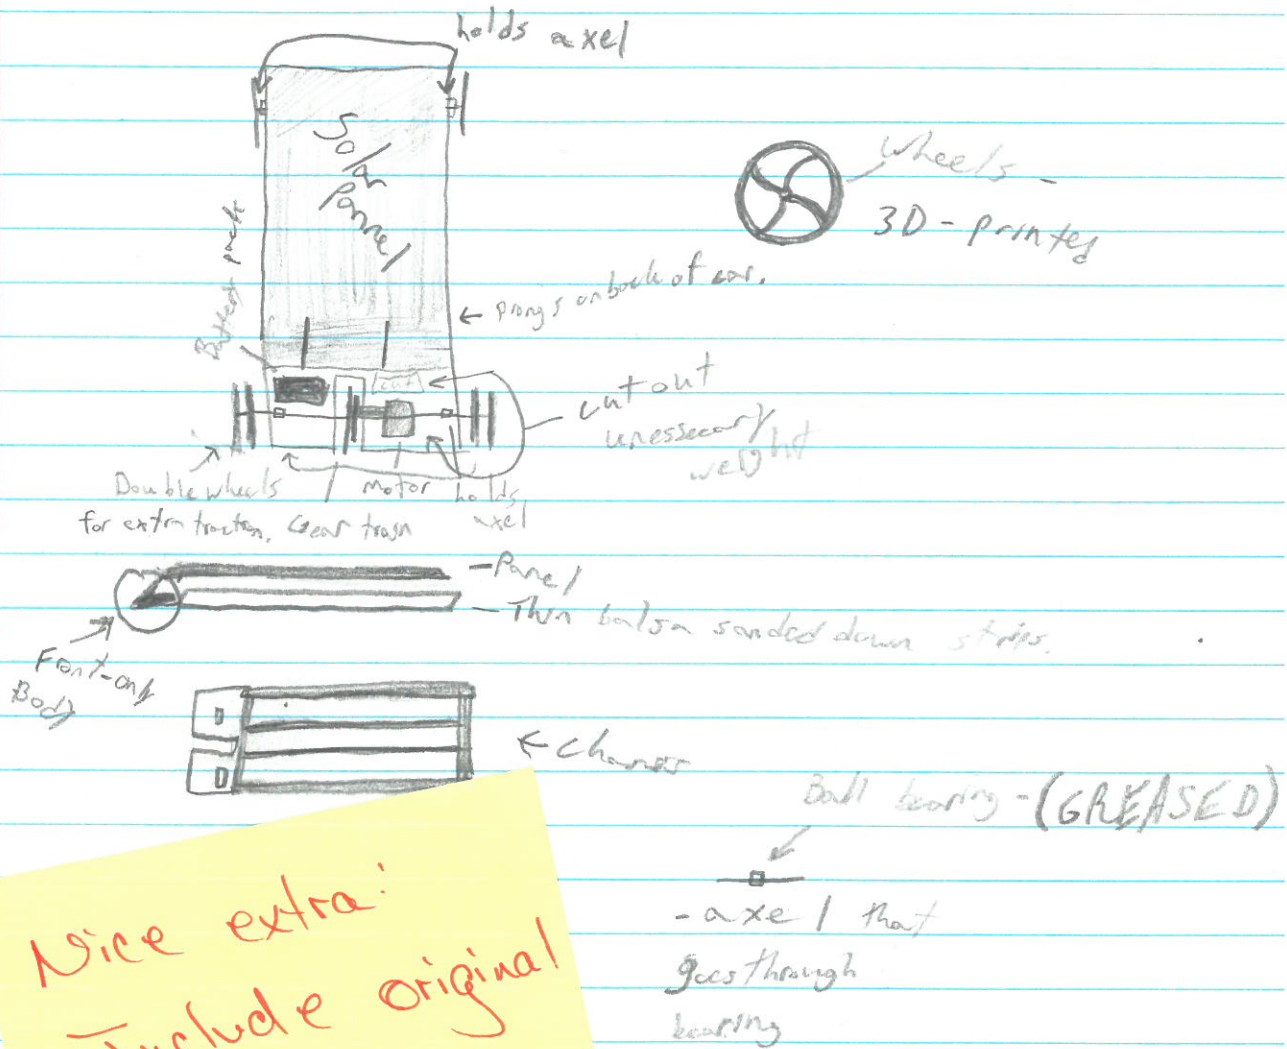 holds axel
Solar
Pannel
wheels -
3D - printed
Battery pack
← prongs on back of car.
cut
cut out
unessecary
weight
Double wheels
for extra traction.
Gear train
motor
holds
axel
- Panel
- Thin balsa sanded down strips.
Front-only
Body
← Chasses
Ball bearing - (GREASED)
- axel that
goes through
bearing
Nice extra:
Include original